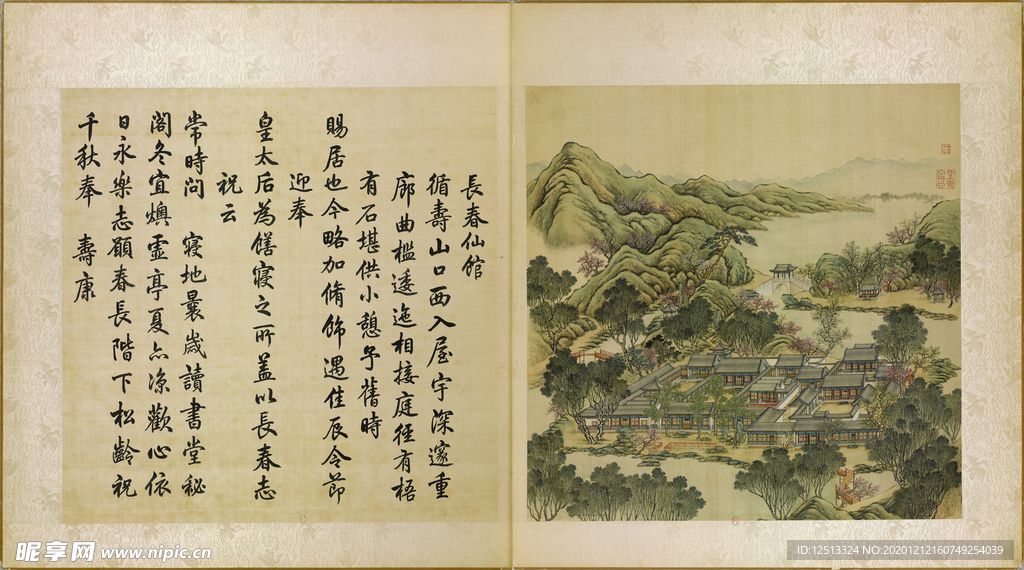 長春仙館
循壽山口西入屋宇深邃重
廊曲檻逶迤相接庭徑有梧
有石堪供小憩予舊時
賜居也今略加脩飾遇佳辰令節
迎奉
皇太后為饍寢之所蓋以長春志
祝云
常時問 寢地曩歲讀書堂秘
閣冬宜燠靈亭夏亦涼歡心依
日永樂志願春長階下松齡祝
千秋奉 壽康
昵享网 www.nipic.cn
ID:12513324 NO:20201212160749254039